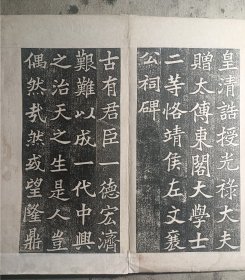 皇清誥授光祿大夫
贈太傅東閣大學士
二等恪靖侯左文襄
公祠碑
古有君臣一德宏濟
艱難以成一代中興
之治天之生是人豈
偶然哉然或望隆鼎